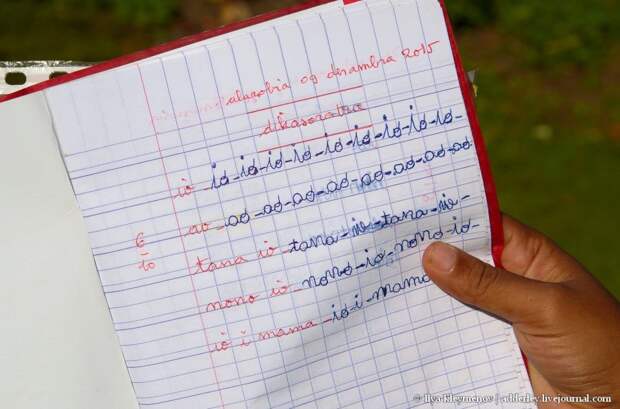 alarobia 09 desambra 2015
dikasoratra
iò -io-io-io-io-io-io-io-io-io-
ao -ao-ao-ao-ao-ao-ao-ao-ao
6
10
tana iò -tana-io-tana-io-
nono iò -nono-io-nono-io-
iò i mama -io i-mama
© Ilya Kleymenov | odderley.livejournal.com